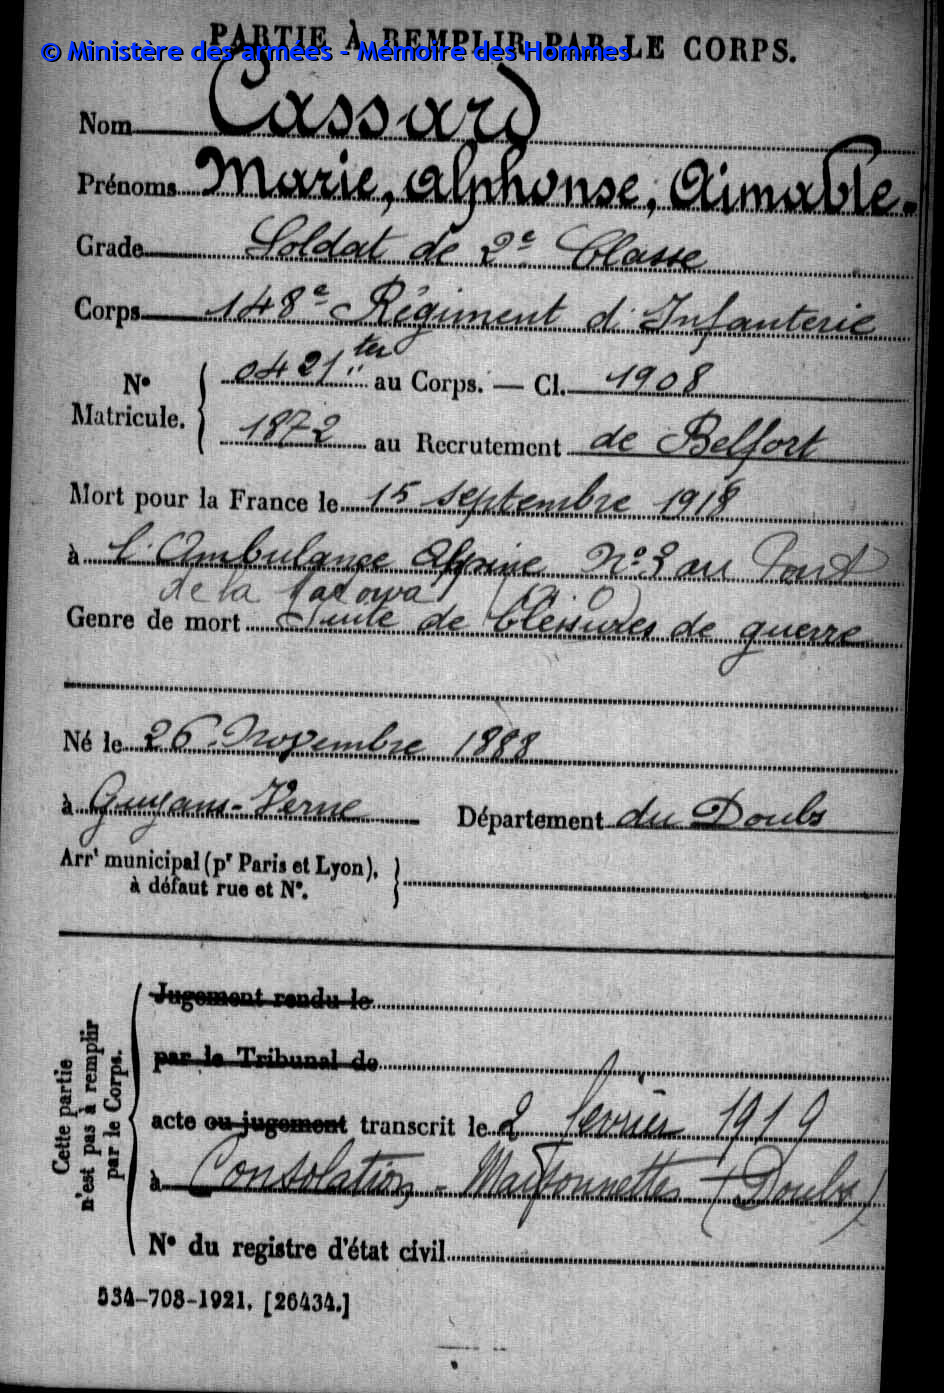 PARTIE À REMPLIR PAR LE CORPS.
© Ministère des armées - Mémoire des Hommes
Nom Cassard
Prénoms Marie, Alphonse, Aimable.
Grade Soldat de 2e Classe
Corps 148e Régiment d'Infanterie
No Matricule. { 0421 ter au Corps. — Cl. 1908
1872 au Recrutement de Belfort
Mort pour la France le 15 septembre 1918
à l'Ambulance Alpine No 3 au Pont
de la (A.O)
Genre de mort Suite de blessures de guerre
Né le 26 Novembre 1888
à Guyans-Verne Département du Doubs
Arrt municipal (pr Paris et Lyon), à défaut rue et No. }
Cette partie n'est pas à remplir par le Corps.
Jugement rendu le
par le Tribunal de
acte ou jugement transcrit le 2 février 1919
à Consolation - Maisonnettes (Doubs)
No du registre d'état civil
534-708-1921. [26434.]